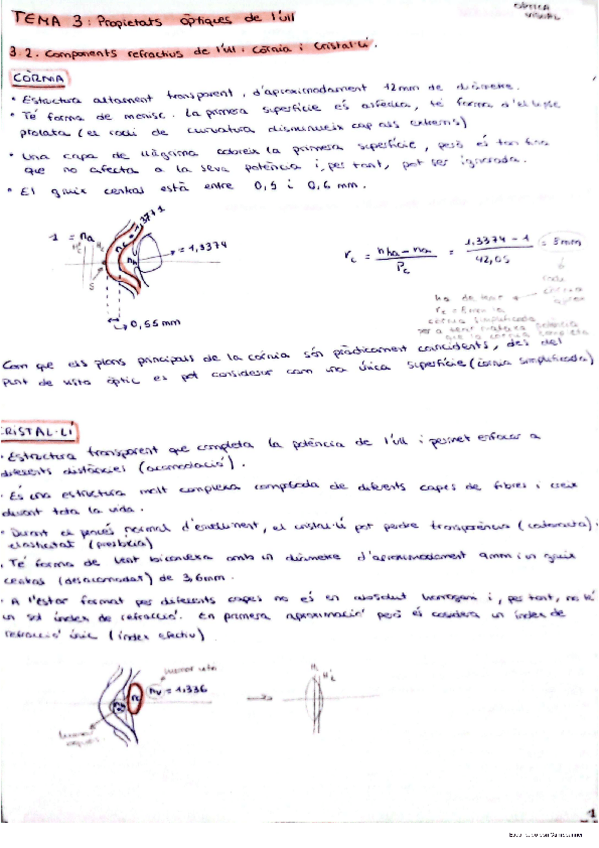 ÒPTICA
VISUAL
TEMA 3: Propietats òptiques de l'ull
3.2. Components refractius de l'ull: Còrnia i Cristal·lí.
CÒRNIA
• Estructura altament transparent, d'aproximadament 12mm de diàmetre.
• Té forma de menisc. La primera superfície és asfèrica, té forma d'el·lipse
prolata (el radi de curvatura disminueix cap als extrems)
• Una capa de llàgrima cobreix la primera superfície, però és tan fina
que no afecta a la seva potència i, per tant, pot ser ignorada.
• El gruix central està entre 0,5 i 0,6 mm.
1 = na
= 1,3374
0,55 mm
rc = nha - na / Pc = 1.3374 - 1 / 42,05 = 8mm
Com que els plans principals de la còrnia són pràcticament coincidents, des del
punt de vista òptic es pot considerar com una única superfície (còrnia simplificada)
CRISTAL·LÍ
• Estructura transparent que completa la potència de l'ull i permet enfocar a
diferents distàncies (acomodació).
• És una estructura molt complexa composada de diferents capes de fibres i creix
durant tota la vida.
• Durant el procés normal d'envelliment, el cristal·lí pot perdre transparència (cataractes) i
elasticitat (presbícia)
• Té forma de lent biconvexa amb un diàmetre d'aproximadament 9mm i un gruix
central (desacomodat) de 3,6mm.
• A l'estar format per diferents capes no és en absolut homogeni i, per tant, no té
un sol índex de refracció. En primera aproximació però es considera un índex de
refracció únic (índex efectiu).
nv = 1,336
1